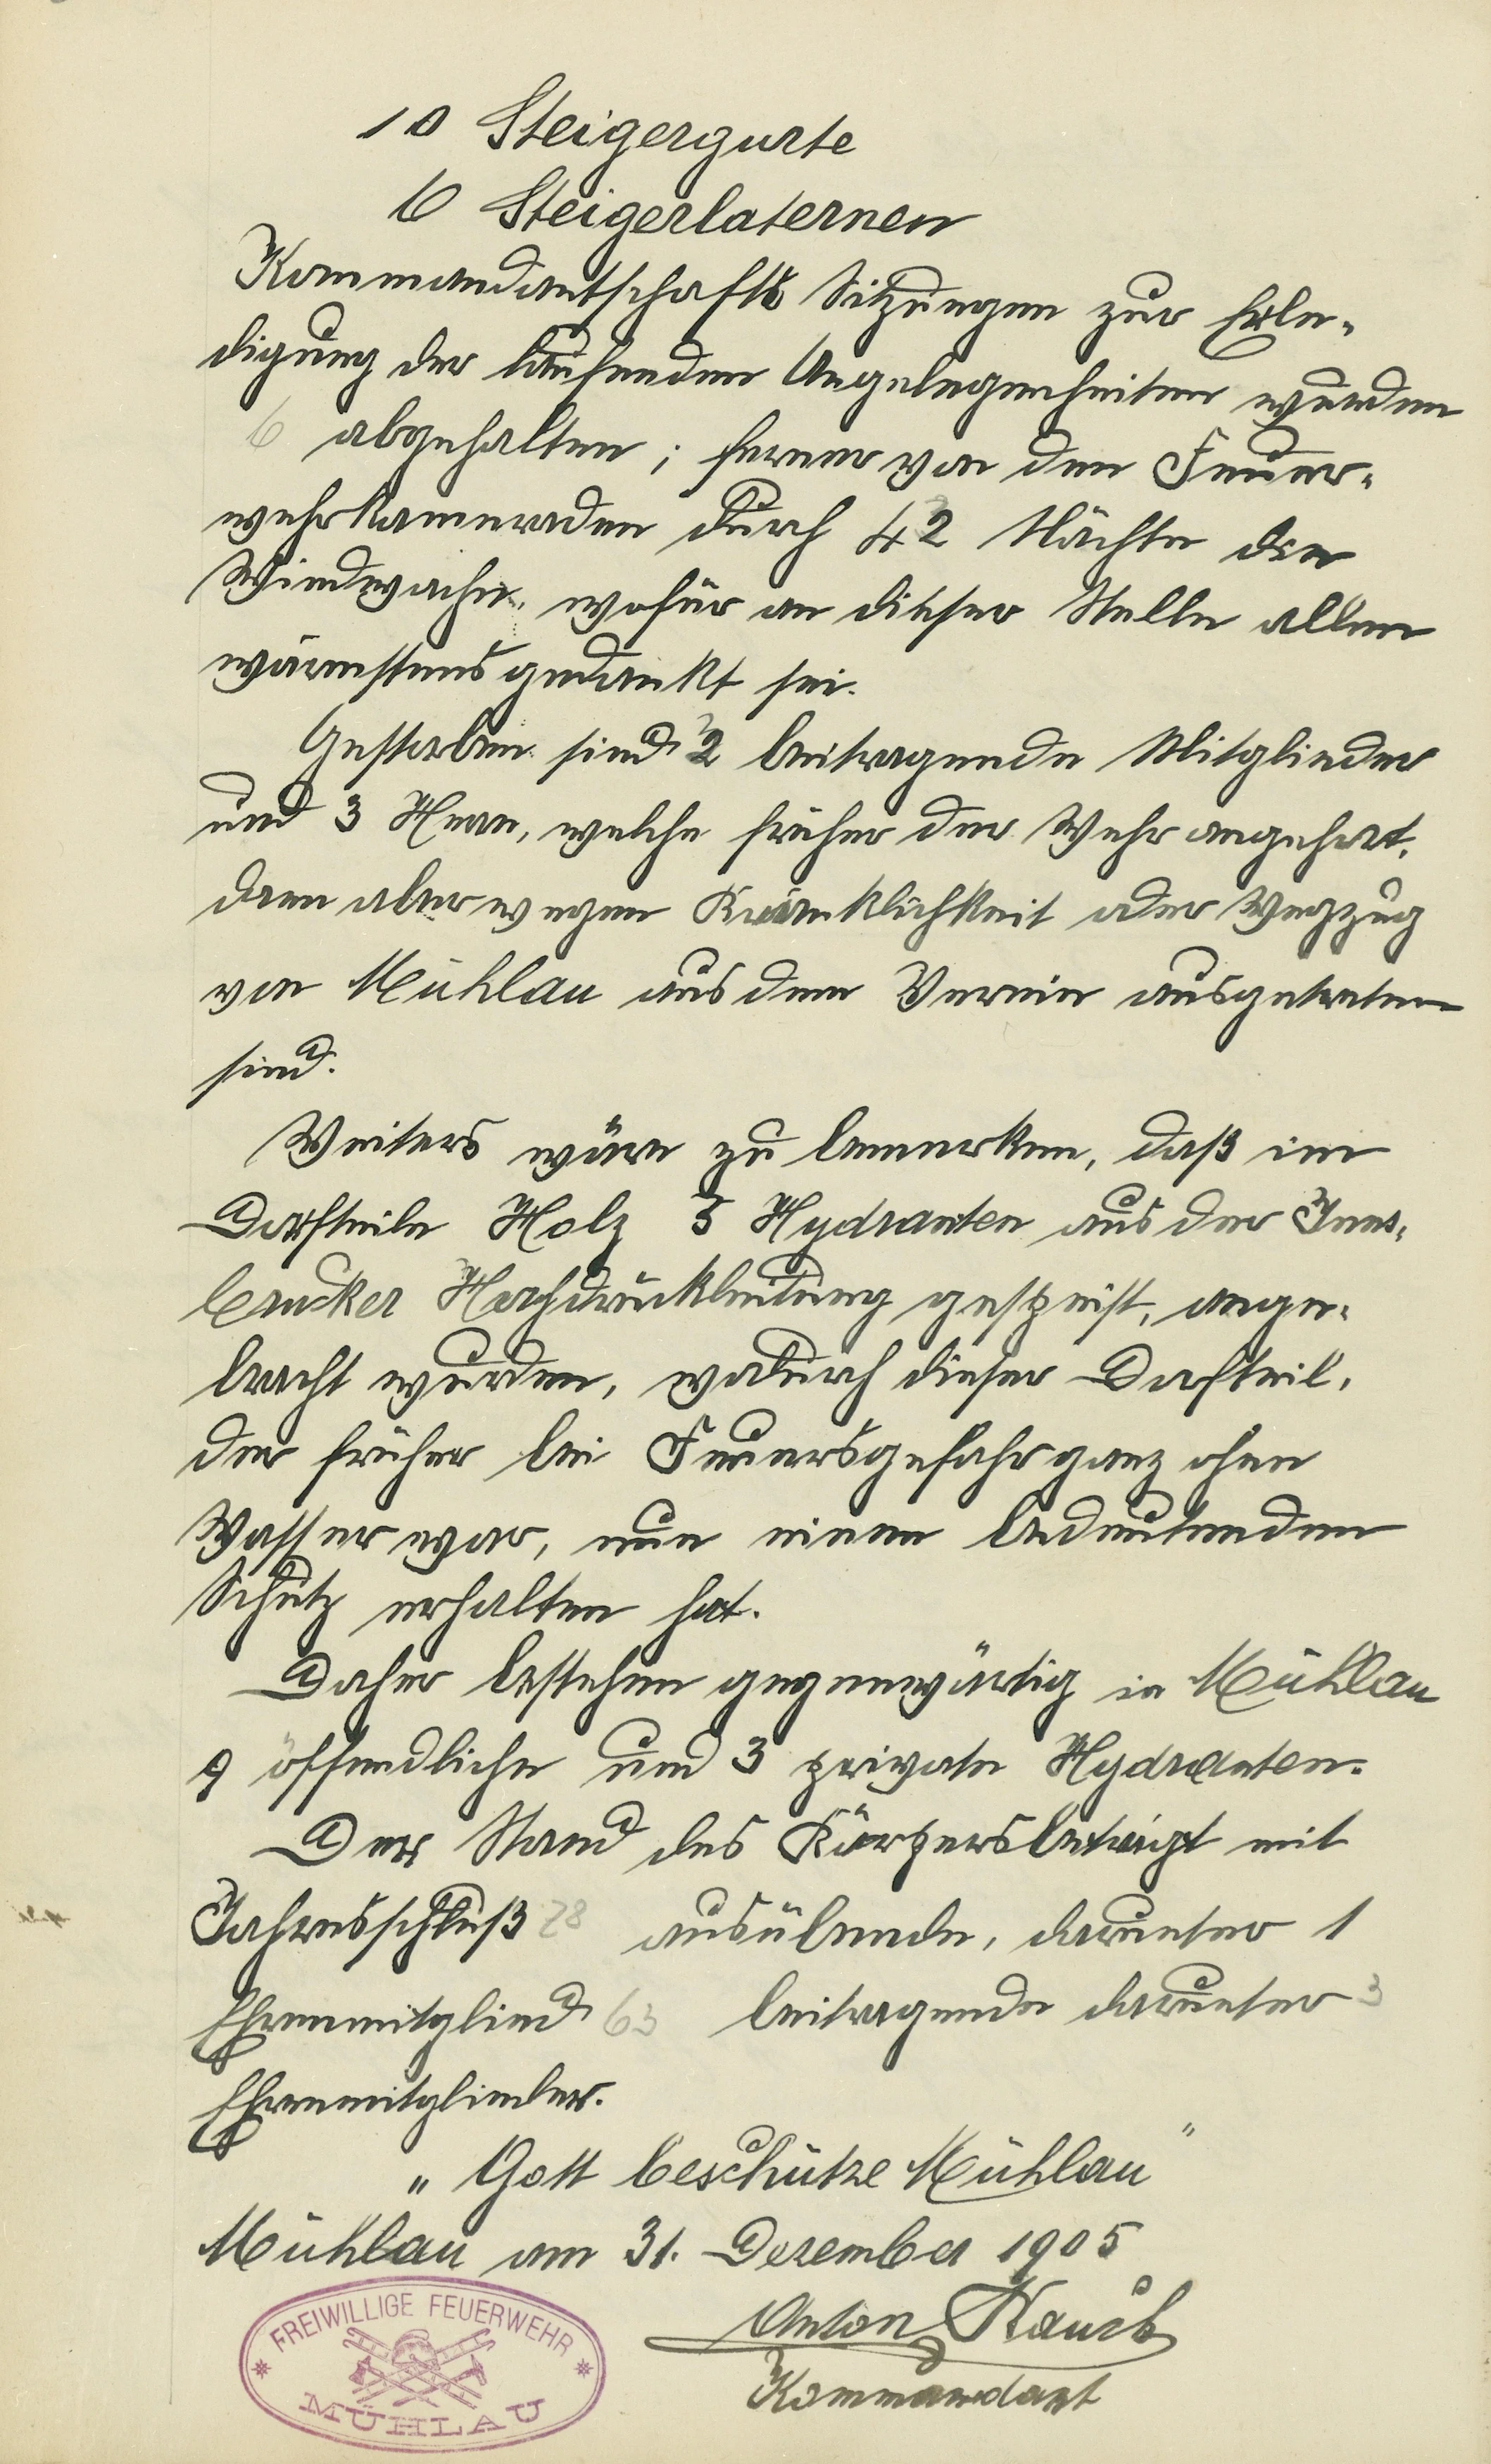 10 Steigergurte
6 Steigerlaternen
Kommandantschafts Sitzungen zur Erle-
digung der laufenden Angelegenheiten wurden
6 abgehalten; ferner von den Feuer-
wehrkameraden durch 42 Nächte die
Windwache, wofür an dieser Stelle allen
wärmstens gedankt sei.
Gestorben sind 2 beitragende Mitglieder
und 3 Herrn, welche früher der Wehr angehört,
dann aber wegen Kränklichkeit oder Wegzug
von Mühlau aus dem Verein ausgetreten
sind.
Weiters wäre zu bemerken, daß im
Dorfteile Holz 3 Hydranten aus der Inns-
brucker Hochdruckleitung gespeist, ange-
bracht wurden, wodurch dieser Dorfteil,
der früher bei Feuersgefahr ganz ohne
Wasser war, nun einen bedeutenden
Schutz erhalten hat.
Daher bestehen gegenwärtig in Mühlau
9 öffendliche und 3 private Hydranten.
Der Stand des Körpers beträgt mit
Jahresschluß 78 ausübende, darunter 1
Ehrenmitglied 63 beitragende darunter 3
Ehrenmitglieder.
„Gott beschütze Mühlau"
Mühlau am 31. Dezember 1905
Anton Rauch
Kommandant
FREIWILLIGE FEUERWEHR
MÜHLAU